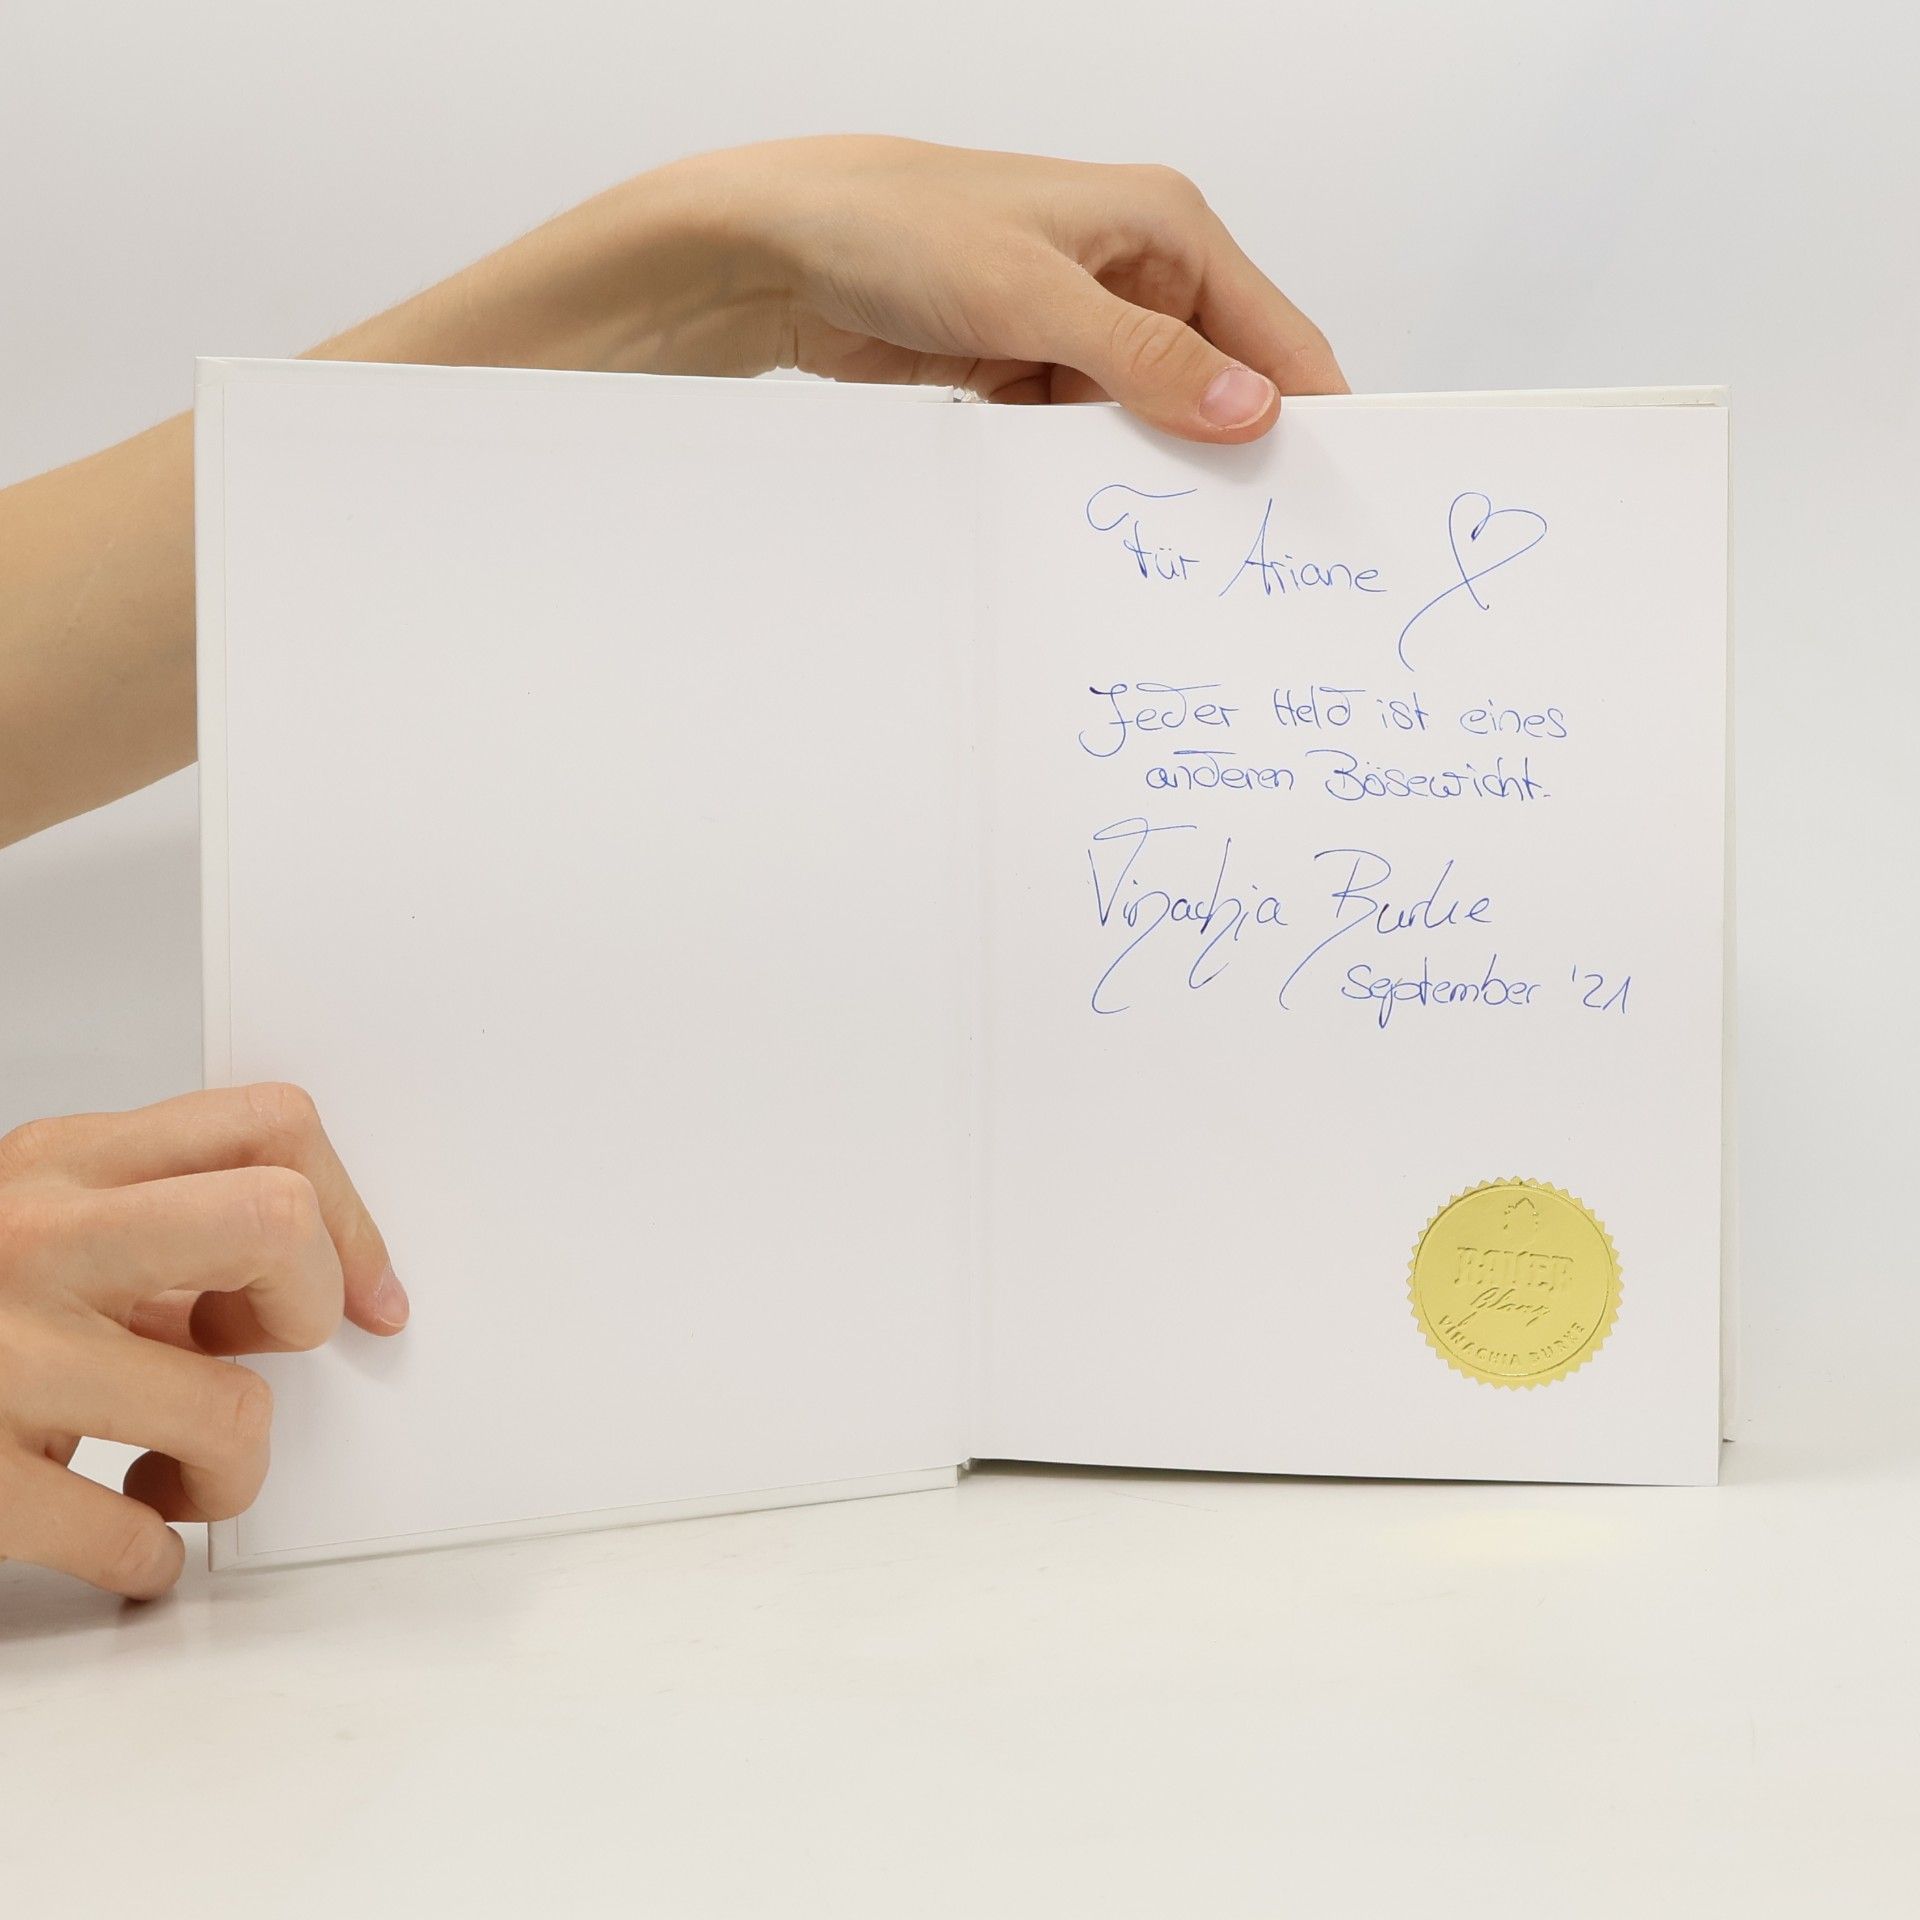 Für Ariane
Jeder Held ist eines
anderen Bösewicht.
Vinachia Burke
September '21
Glanz
VINACHIA BURKE